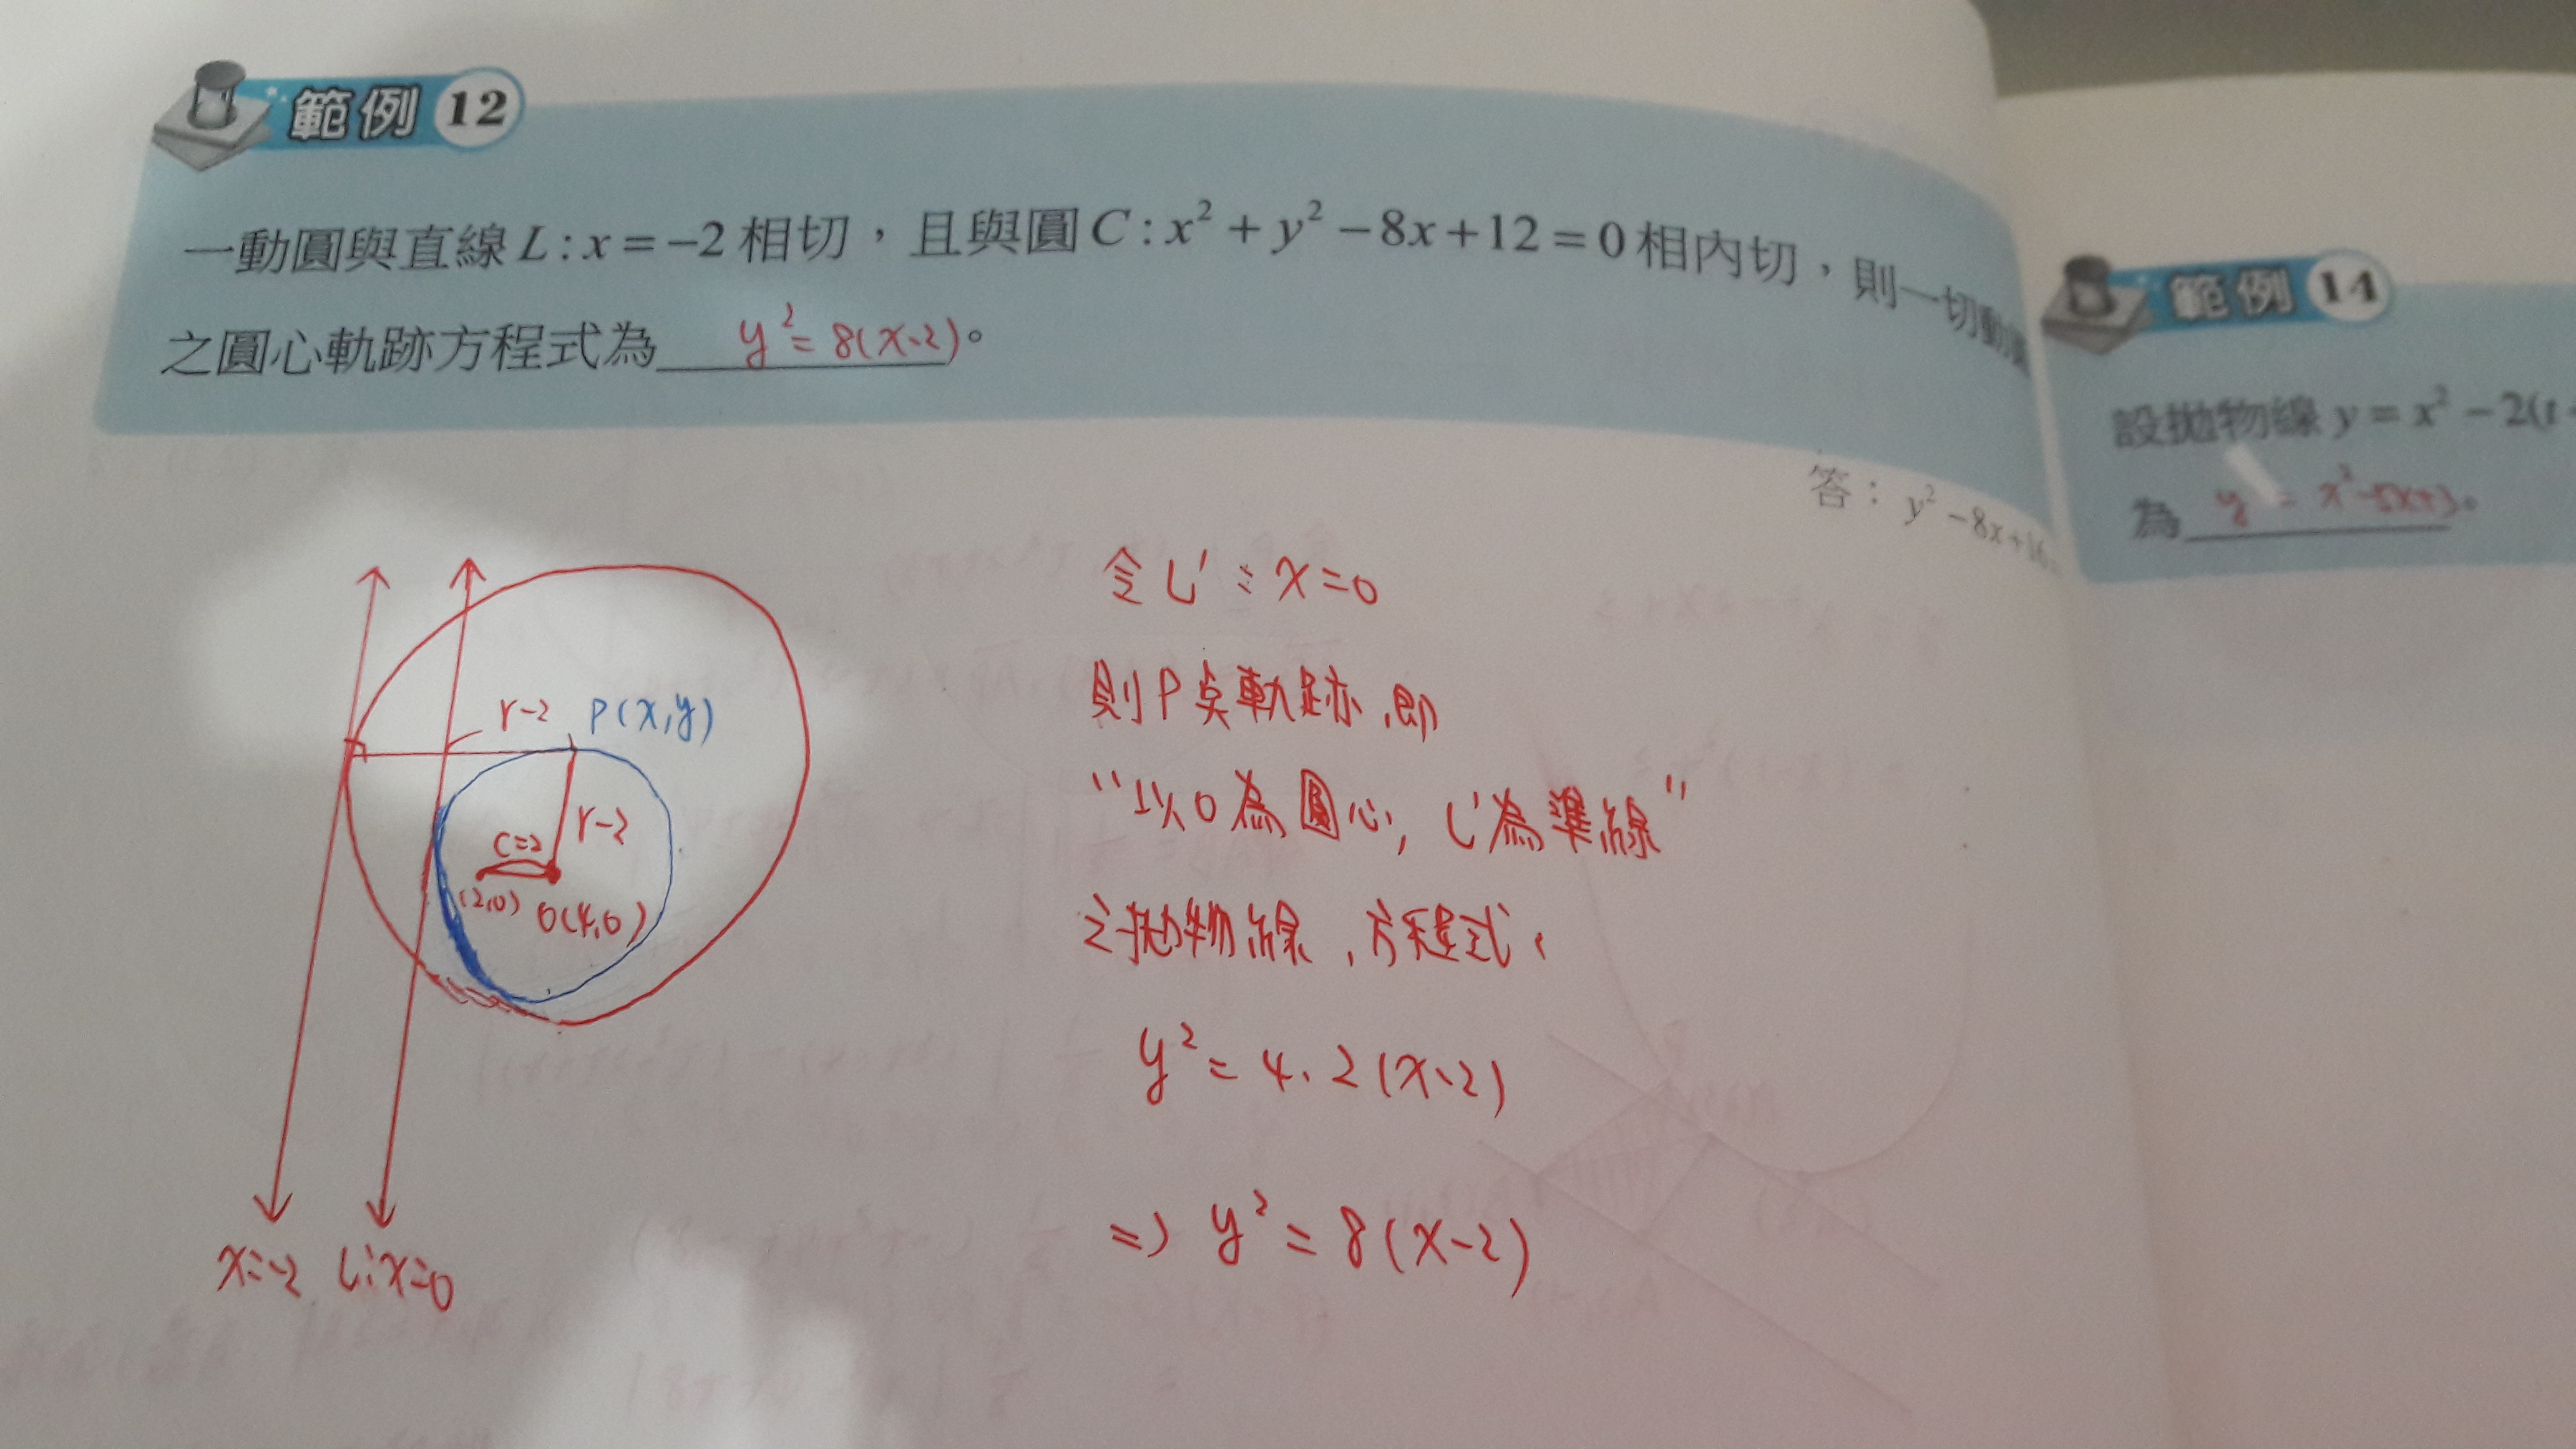 範例 12
一動圓與直線 L : x = −2 相切，且與圓 C : x² + y² − 8x + 12 = 0 相內切，則一切動圓
之圓心軌跡方程式為 y² = 8(x-2)。
答： y² − 8x + 16
r-2 P(x,y)
r-2
c=2
(2,0) O(4,0)
x=-2 L': x=0
令 L' : x=0
則P點軌跡,即
"以O為圓心, L'為準線"
之拋物線,方程式:
y² = 4·2(x-2)
=> y² = 8(x-2)
範例 14
設拋物線 y = x² − 2(t
為